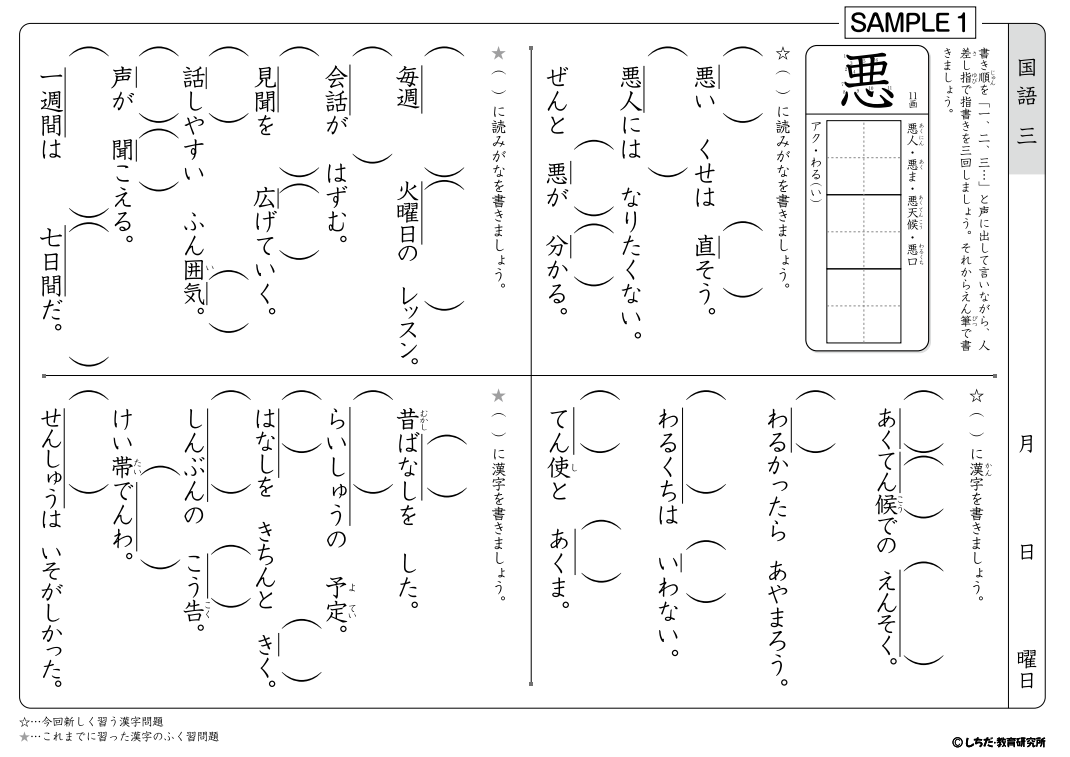 SAMPLE 1
国語 三
月 日 曜日
書き順を「一、二、三…」と声に出して言いながら、人
差し指で指書きを三回しましょう。それからえん筆で書
きましょう。
悪
11画
悪人・悪ま・悪天候・悪口
アク・わる(い)
☆( )に読みがなを書きましょう。
悪い くせは 直そう。
悪人には なりたくない。
ぜんと 悪が 分かる。
★( )に読みがなを書きましょう。
毎週 火曜日の レッスン。
会話が はずむ。
見聞を 広げていく。
話しやすい ふん囲気。
声が 聞こえる。
一週間は 七日間だ。
☆( )に漢字を書きましょう。
あくてん候での えんそく。
わるかったら あやまろう。
わるくちは いわない。
てん使と あくま。
★( )に漢字を書きましょう。
昔ばなしを した。
らいしゅうの 予定。
はなしを きちんと きく。
しんぶんの こう告。
けい帯でんわ。
せんしゅうは いそがしかった。
☆…今回新しく習う漢字問題
★…これまでに習った漢字のふく習問題
©しちだ・教育研究所